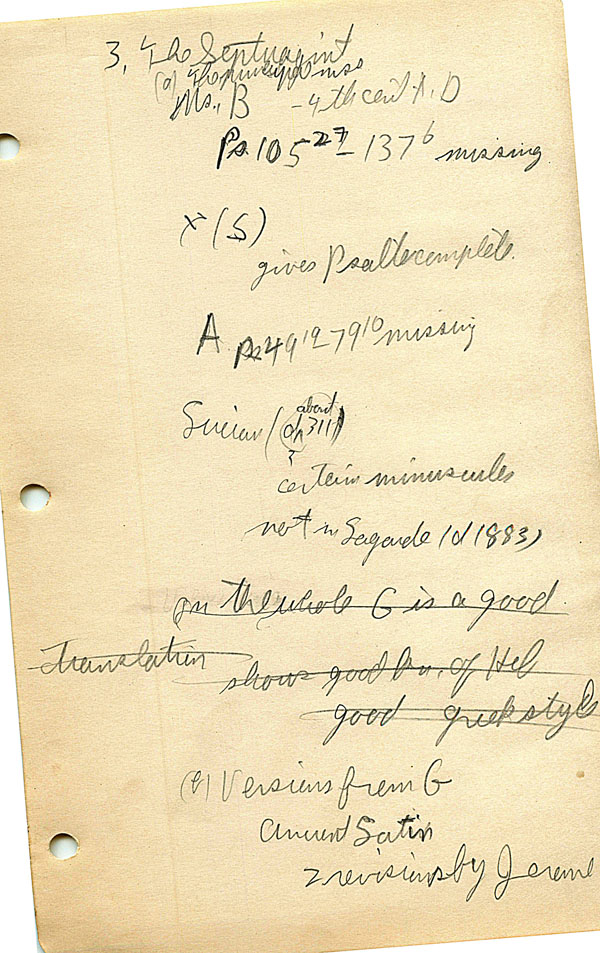 3, The Septuagint
(a) The principal mss
Ms. B - 4th cent A.D
Ps 105 27 - 137 6 missing
א (S)
gives Psalter complete.
A Ps 49 19 - 79 10 missing
Lucian (d about 311)
certain minuscules
not in Lagarde (d 1883)
on the whole G is a good
translation
shows good kn. of Heb
good greek style
(b) Versions from G
ancient Latin
2 revisions by Jerome